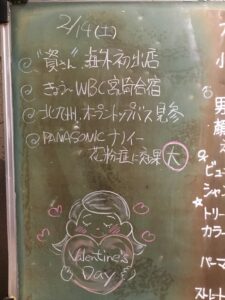 2/14(土)
"資さん" 毎木初出店
きょう〜WBC宮崎合宿
オープントップバス見参
PANASONIC ナノイー
花粉症に効果大
Valentine's
Day
男
顔
ビュー
シャン
トリー
カラー
パーマ
ストレート